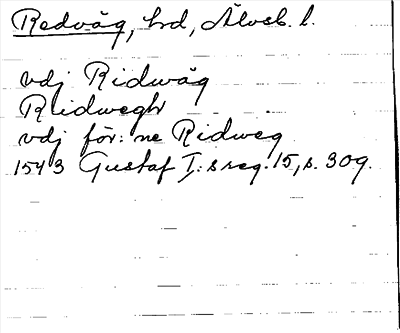 Redväg, hd, Älvsb. l.
vdj Ridwäg
Ridweghr
vdj för: ne Ridweg
1543 Gustaf I:s reg. 15, s. 309.